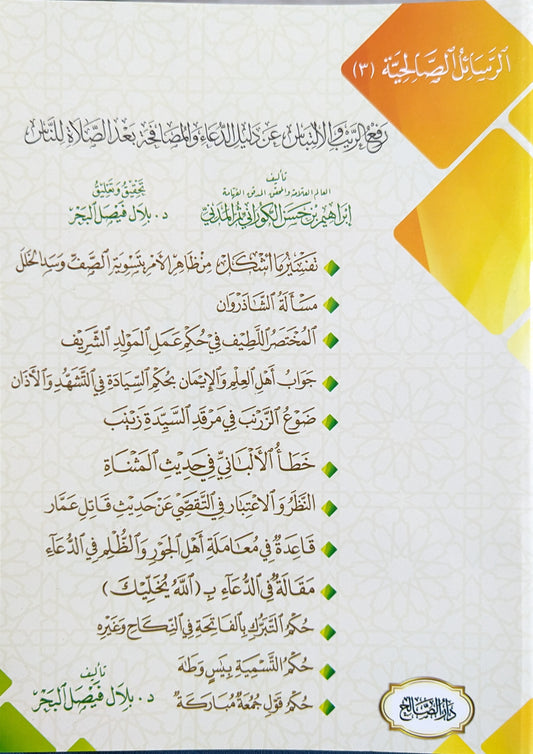 الرسائل الصالحية (٣)
رفع الريب والالتباس عن دليل الدعاء والمصافحة بعد الصلاة للناس
تأليف
العالم العلامة والمحقق المدقق الفهامة
إبراهيم بن حسن الكوراني ثم المدني
تحقيق وتعليق
د. بلال فيصل البحر
تفسير ما أشكل من ظاهر الأمر بتسوية الصف وسد الخلل
مسألة الشاذروان
المختصر اللطيف في حكم عمل المولد الشريف
جواب أهل العلم والإيمان بحكم السيادة في التشهد والأذان
ضوع الزرنب في مرقد السيدة زينب
خطأ الألباني في حديث المشناة
النظر والاعتبار في التقصي عن حديث قاتل عمار
قاعدة في معاملة أهل الجور والظلم في الدعاء
مقالة في الدعاء بـ (الله يخليك)
حكم التبرك بالفاتحة في النكاح وغيره
حكم التسمية بيس وطه
حكم قول جمعة مباركة
تأليف
د. بلال فيصل البحر
دار الصالح